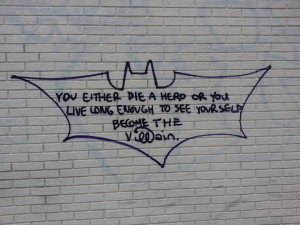 YOU EITHER DIE A HERO OR YOU
LIVE LONG ENOUGH TO SEE YOURSELF
BECOME THE
Villain.